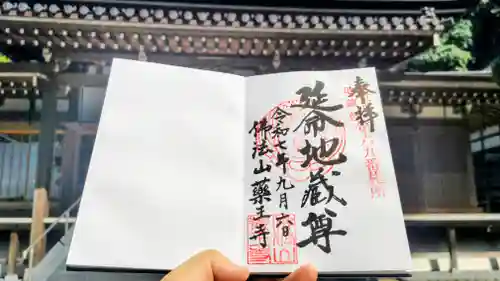 奉拝
延命地蔵尊
令和七年九月六日
佛法山薬王寺